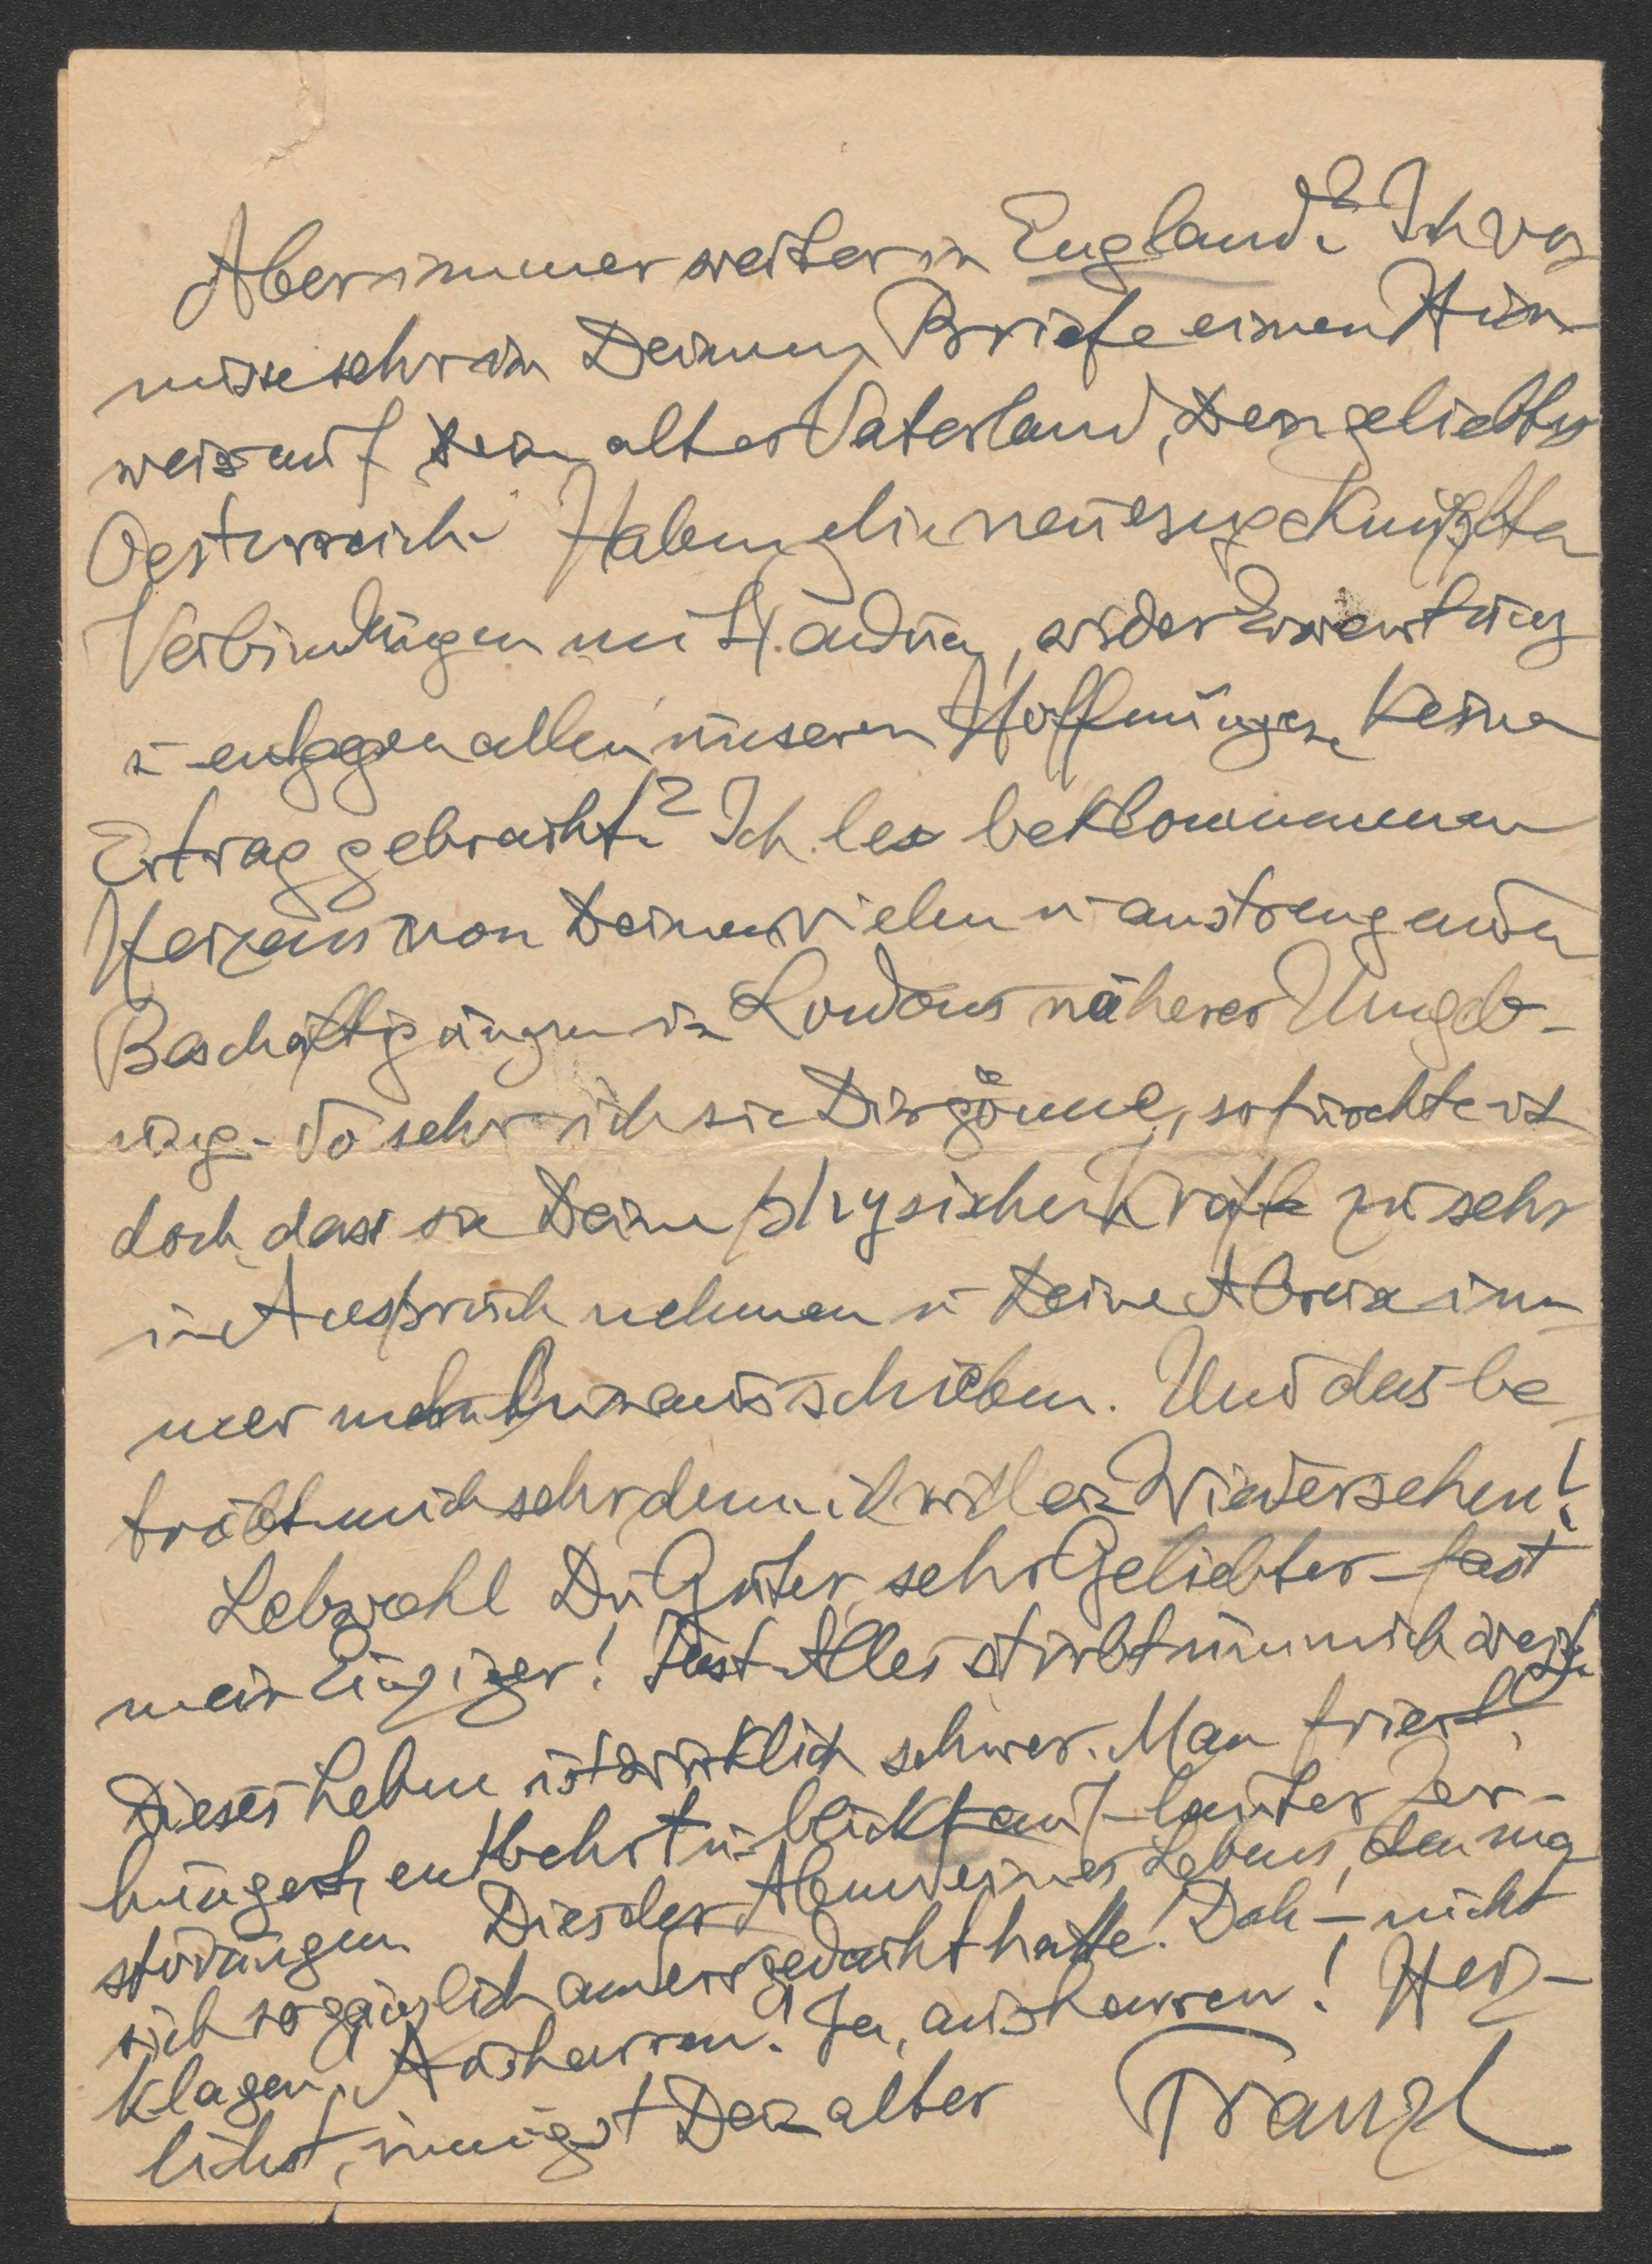 Aber immer weiter in England? Ich ver-
misse sehr in Deinem Briefe einen Hin-
weis auf Dein altes Vaterland, Dein geliebtes
Oesterreich. Haben die neu angeknüpften
Verbindungen mit wider Erwartung
u. entgegen allen unseren Hoffnungen keinen
Ertrag gebracht? Ich lese beklommenen
Herzens von Deinen vielen u. anstrengenden
Beschäftigungen in Londons näherer Umgeb-
ung. So sehr ich sie Dir gönne, so fürchte ich
doch, dass sie Deine physischen Kräfte zu sehr
in Anspruch nehmen u. Deine Abreise im-
mer mehr hinausschieben. Und das be-
trübt mich sehr, denn ich will ein Wiedersehen!
Lebwohl Du Guter, sehr Geliebter – fast
mein Einziger! Fast Alles stirbt um mich weg.
Dieses Leben ist wirklich schwer. Man friert,
hungert, entbehrt u. blickt auf lauter Zer-
störungen. Dies der Abend eines Lebens, den man
sich so gänzlich anders gedacht hatte! Doch – nicht
klagen, Ausharren! Ja, ausharren! Herz-
lichst, innigst Dein alter Franzl